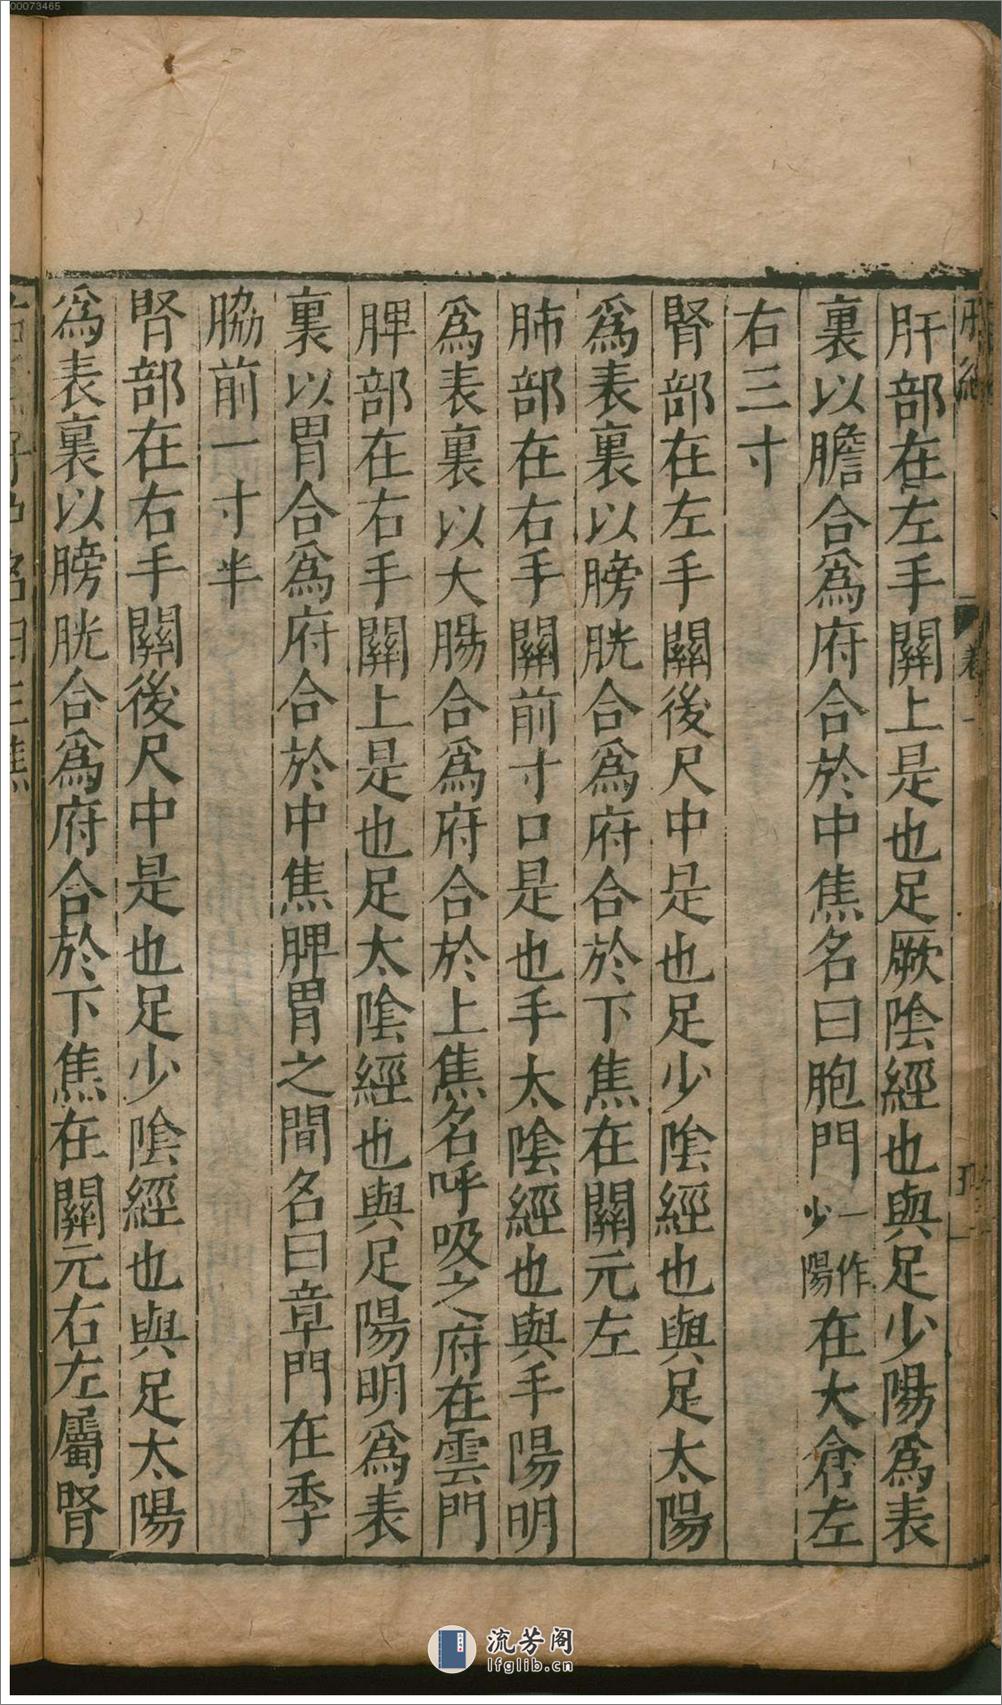 00073465
脉經
卷一
肝部在左手關上是也足厥陰經也與足少陽爲表
裏以膽合爲府合於中焦名曰胞門一作少陽在大倉左
右三寸
腎部在左手關後尺中是也足少陰經也與足太陽
爲表裏以膀胱合爲府合於下焦在關元左
肺部在右手關前寸口是也手太陰經也與手陽明
爲表裏以大腸合爲府合於上焦名呼吸之府在雲門
脾部在右手關上是也足太陰經也與足陽明爲表
裏以胃合爲府合於中焦脾胃之間名曰章門在季
脇前一寸半
腎部在右手關後尺中是也足少陰經也與足太陽
爲表裏以膀胱合爲府合於下焦在關元右左屬腎
流芳阁
lfglib.cn